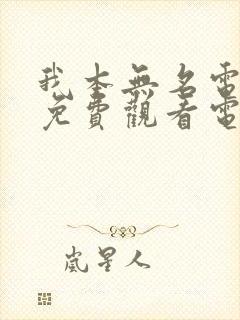 我本無名電
免費觀看電
嵐星人